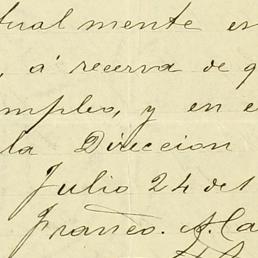 tualmente en
, á reserva de q
mpleo, y en e
la Direccion
Julio 24 del
Franco. A. Ca